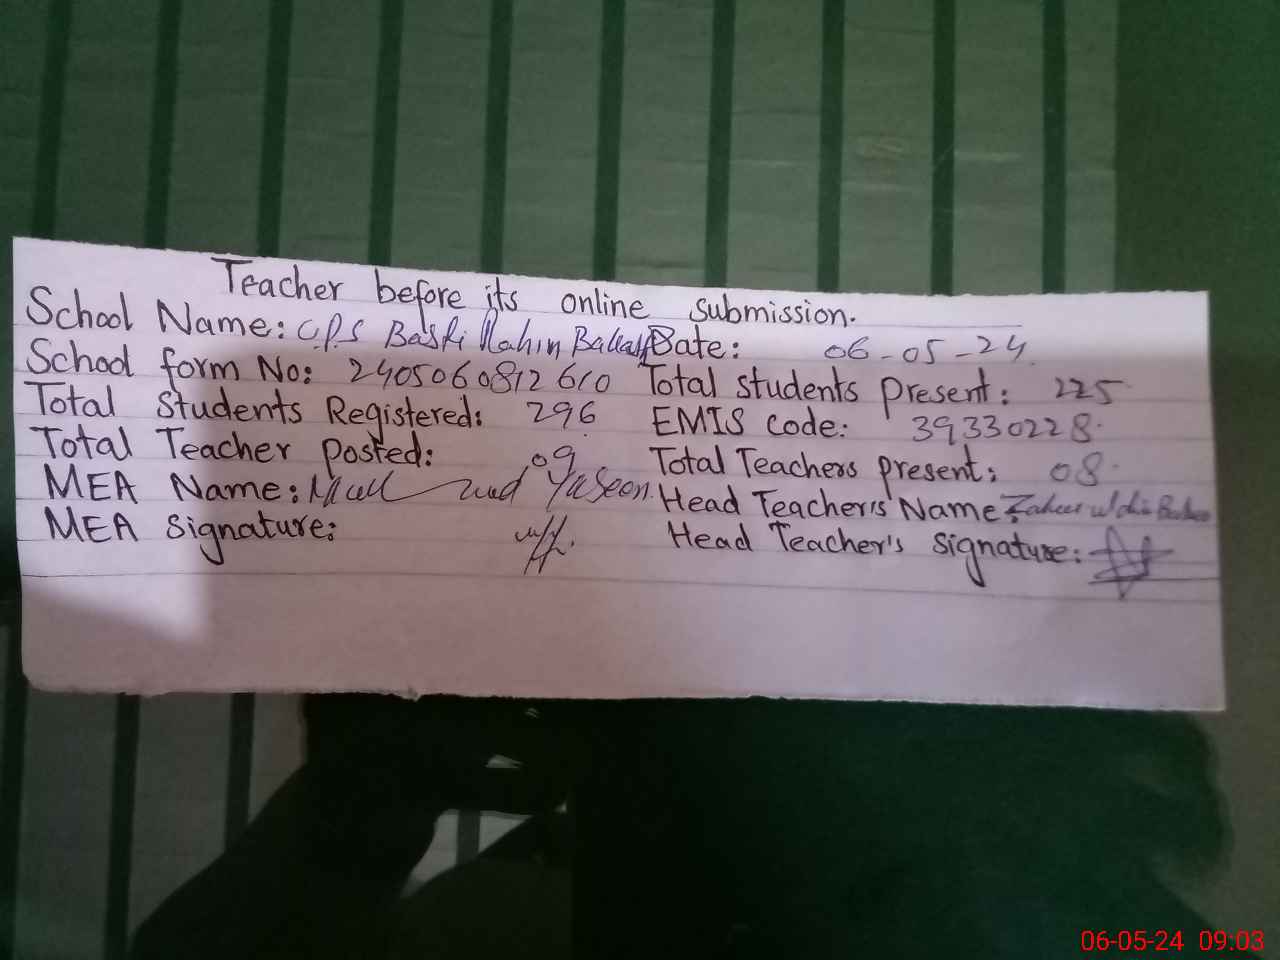 Teacher before its online submission.
School Name: Date: 06-05-24
School form No: 2405060812610 Total students present: 225
Total Students Registered: 296 EMIS Code: 39330228
Total Teacher posted: 09 Total Teachers present: 08
MEA Name: Yaseen Head Teacher's Name:
MEA Signature: Head Teacher's signature:
06-05-24 09:03